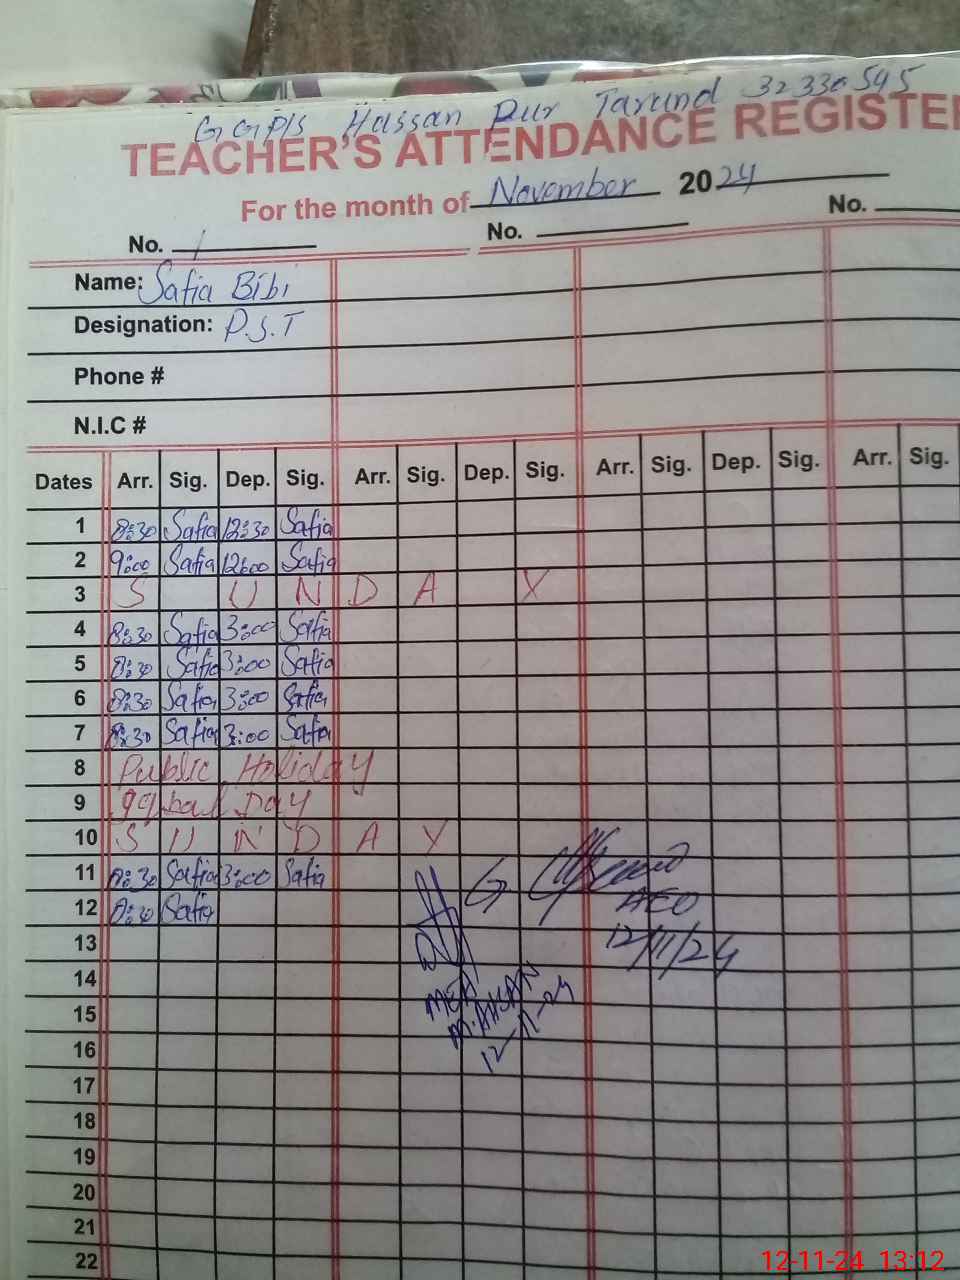 GGP/S Hassan Pur Tarund 32330545
TEACHER'S ATTENDANCE REGISTER
For the month of November 2024
No. 1 No. No.
Name: Safia Bibi
Designation: P.S.T
Phone #
N.I.C #
Dates Arr. Sig. Dep. Sig. Arr. Sig. Dep. Sig. Arr. Sig. Dep. Sig. Arr. Sig.
1 8:30 Safia 12:30 Safia
2 9:00 Safia 12:00 Safia
3 S U N D A Y
4 8:30 Safia 3:00 Safia
5 8:30 Safia 3:00 Safia
6 8:30 Safia 3:00 Safia
7 8:30 Safia 3:00 Safia
8 Public Holiday
9 Iqbal Day
10 S U N D A Y
11 8:30 Safia 3:00 Safia
12 8:30 Safia
AEO
12/11/24
13
14
MEA
15
12-11-24
16
17
18
19
20
21
22
12-11-24 13:12